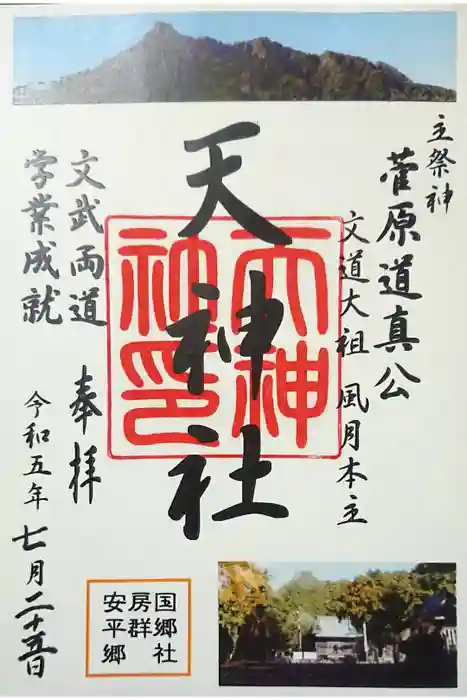 主祭神
菅原道真公
文道大祖 風月本主
天神社
天神社印
奉拝
文武両道
学業成就
令和五年七月二十五日
国郷社
房群
安平郷